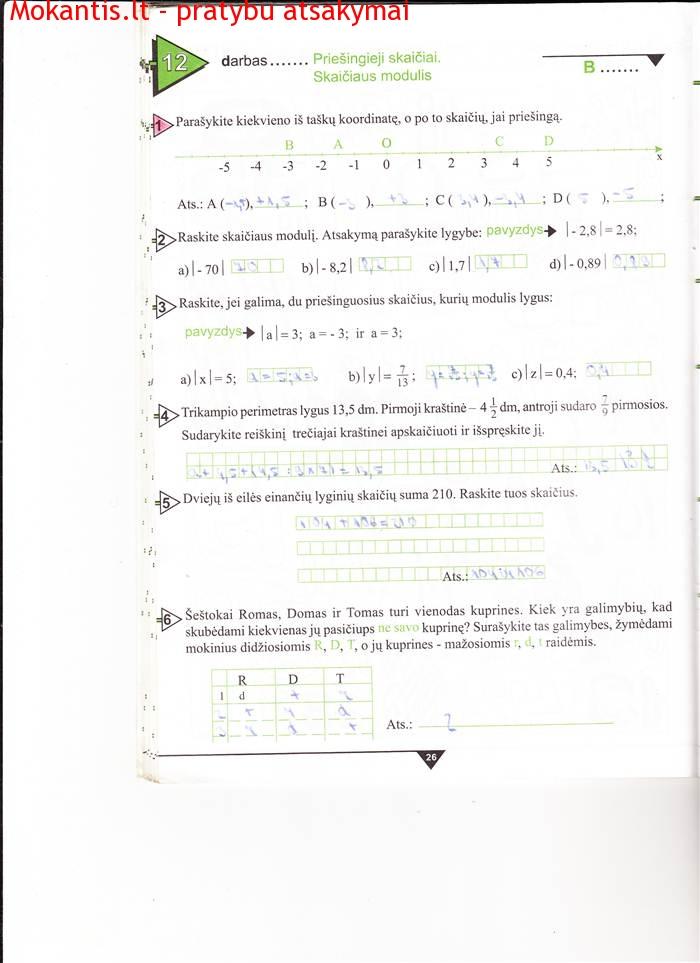 Mokantis.lt - pratybu atsakymai
12 darbas....... Priešingieji skaičiai.
Skaičiaus modulis
B .......
1 Parašykite kiekvieno iš taškų koordinatę, o po to skaičių, jai priešingą.
B A O C D
-5 -4 -3 -2 -1 0 1 2 3 4 5 x
Ats.: A (-1,5), +1,5 ; B ( -3 ), +3 ; C ( 3,4 ), -3,4 ; D ( 5 ), -5 ;
2 Raskite skaičiaus modulį. Atsakymą parašykite lygybe: pavyzdys |- 2,8| = 2,8;
a) |- 70| 70 b) |- 8,2| 8,2 c) |1,7| 1,7 d) |- 0,89| 0,89
3 Raskite, jei galima, du priešinguosius skaičius, kurių modulis lygus:
pavyzdys |a| = 3; a = - 3; ir a = 3;
a) |x| = 5; b) |y| = 7/13; c) |z| = 0,4; 0,4
4 Trikampio perimetras lygus 13,5 dm. Pirmoji kraštinė – 4 1/2 dm, antroji sudaro 7/9 pirmosios.
Sudarykite reiškinį trečiajai kraštinei apskaičiuoti ir išspręskite jį.
Ats.:
5 Dviejų iš eilės einančių lyginių skaičių suma 210. Raskite tuos skaičius.
104 + 106 = 210
Ats.: 104 ir 106
6 Šeštokai Romas, Domas ir Tomas turi vienodas kuprines. Kiek yra galimybių, kad
skubėdami kiekvienas jų pasičiups ne savo kuprinę? Surašykite tas galimybes, žymėdami
mokinius didžiosiomis R, D, T, o jų kuprines - mažosiomis r, d, t raidėmis.
R D T
1 d t r
2 t r d
Ats.: 2
26